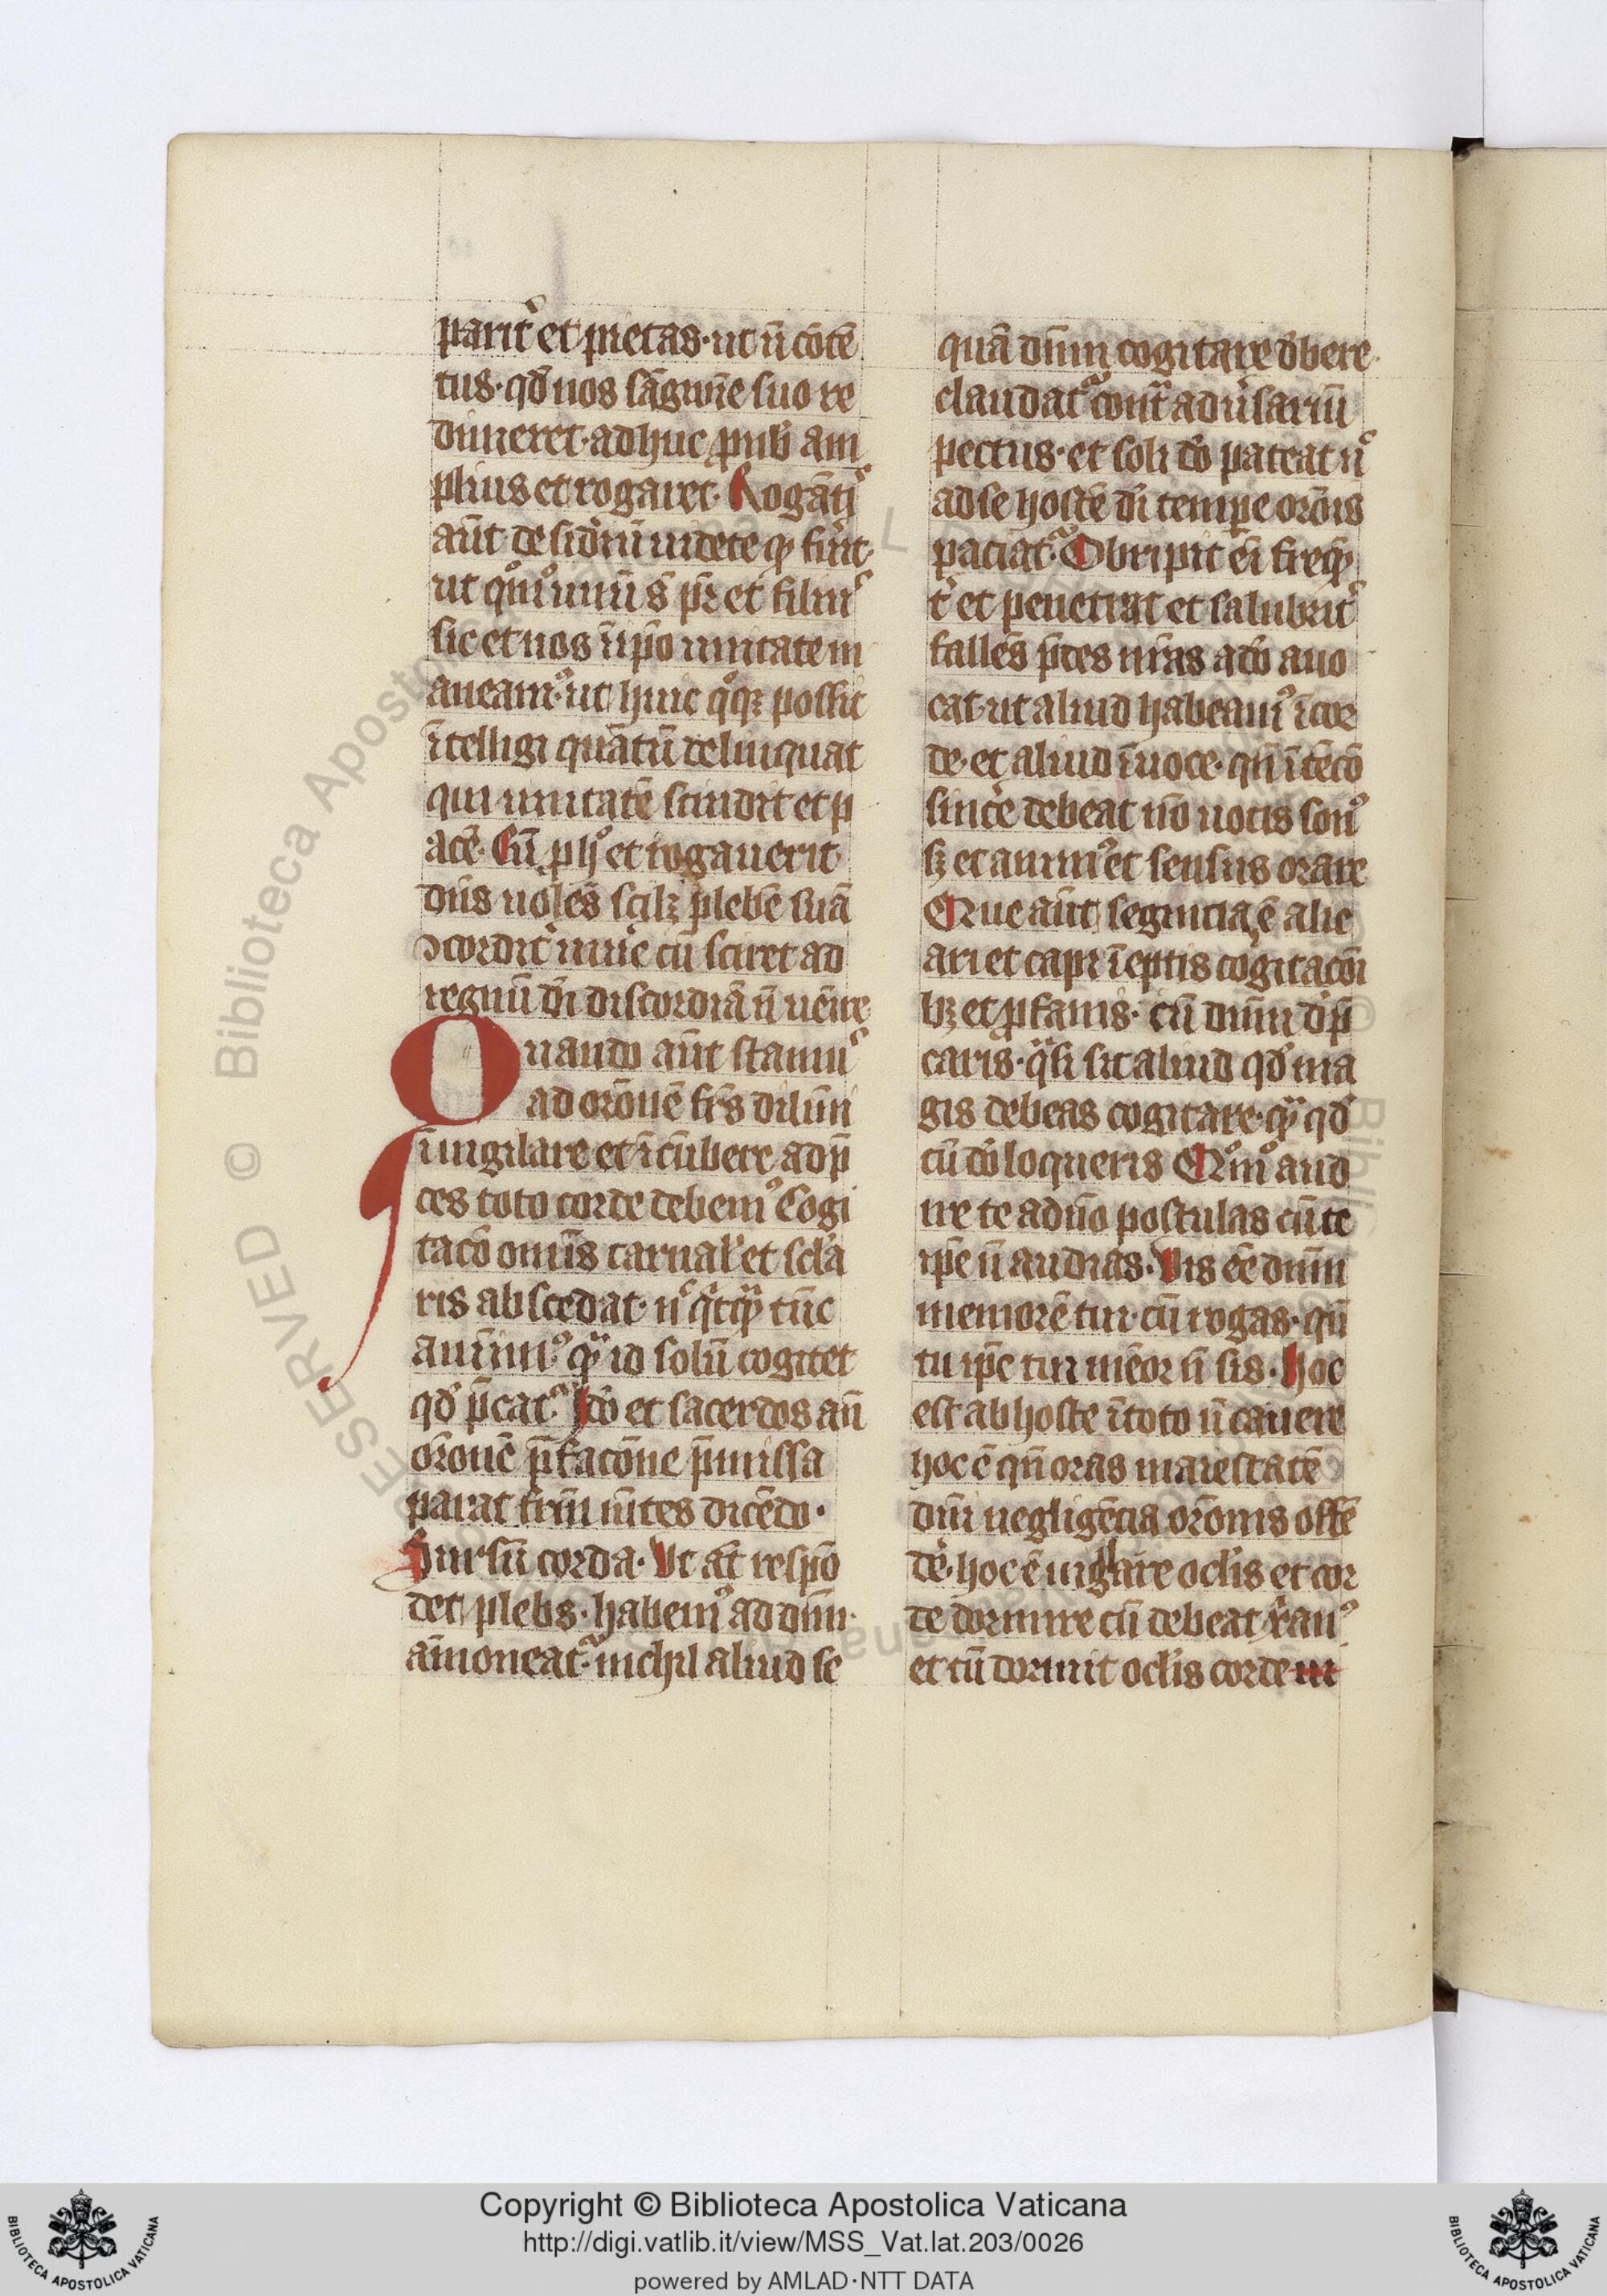 parit᷑ et pietas· ut n̄ cōtē
tus· qd̛ nos sāgwīe suo re
dimeret· adhuc ꝓ nob̄ am
plius et rogaret· Rogāti᷒
aūt desid̛iū uidete qꝫ fu̅it·
ut qͦmͦ unū s̄ pr̄ et filiu᷒
sic et nos ī ipō unitate m
aneam᷒· ut hinc qͦqꝫ possit
ītelligi quātū delinquat
qui unitatē scindit et p
acē· Cū ꝓ hͦ et rogauerit
dn̄s uolēs scilꝫ plebē suā
ↄcordit᷑ uiu᷑e cū sciret ad
regnū dī discordiā n̄ uēire
Quando aūt stamu᷒
ad orōnē fr̄s dilc̄m
inuigilare et īcūbere ad p̄
ces toto corde debem᷒ Cogi
tacō omīs carnal̛ et scl̛a
ris abscedat· n᷒ qͥcqͣ tūc
anim᷒ qͣ id solū cogitet
qd̛ p̄cat᷑· Idō et sacerdos an̄
orōnē p̄facōne p̄missa
parat fr̄m mītes dicēdo·
Sursū corda· Ut at̄ respō
det plebs· habem᷒ ad dnm̄·
amoneat᷑· nichil aliud se
quā dnm̄ cogitare d̛bere
claudat᷑ contͣ adưsariū
pectus· et soli dō pateat n᷒
ad se hostē dī tempe orōis
paciat᷑· Obripit eī freqꝫ
t᷑ et penetrat et salubrit᷑
fallēs p̄ces nr̄as a dō auo
cat· ut aliud habeam᷒ ī cor
de· et aliud ī uoce· qn̄ ītēcō
sinc̛e debeat nō uocis son᷒
sꝫ et anim᷒ et sensus orare
Que aūt segnicia ē alie
ari et capi īeptis cogitacōi
bꝫ et ꝓfanis· cū dnm̄ dp̄
caris· qͣsi sit aliud qd̛ ma
gis debeas cogitare· qͣ qd̛
cū dō loqueris Qͦmͦ aud
ire te a dn̄o postulas cū te
ipē n̄ audias· Vis eē dnm̄
memorē tui· cū rogas· qn̄
tu ipē tui mēor n̄ sis· Hoc
est ab hoste ī toto n̄ cauere
hoc ē qn̄ oras maiestatē
dnī negligēcia orōnis offē
d̛e· hoc ē uigilare oclis et cor
de dormire cū debeat xan᷒
et cū dormit oclis corde
Copyright © Biblioteca Apostolica Vaticana
http://digi.vatlib.it/view/MSS_Vat.lat.203/0026
powered by AMLAD·NTT DATA